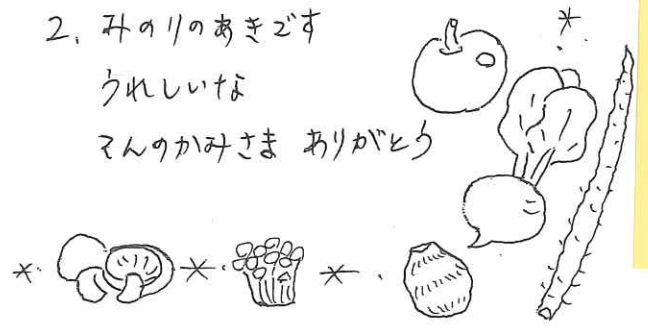 2. みのりのあきです
うれしいな
てんのかみさま ありがとう